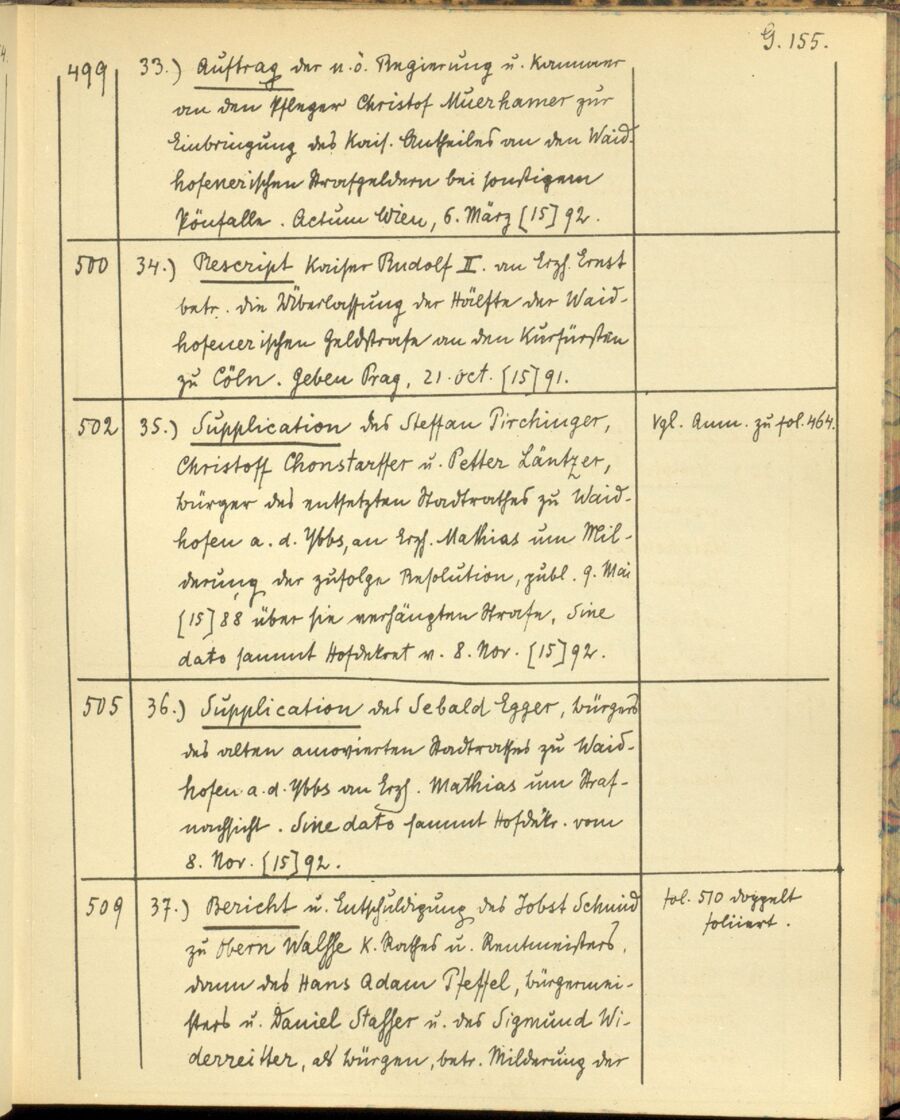 G. 155.
499 33.) Auftrag der n. ö. Regierung u. Kammer
an den Pfleger Christof Muerhamer zur
Einbringung des Kais. Antheiles an den Waid-
hofenerischen Strafgeldern bei sonstigem
Pönfalle. Actum Wien, 6. März [15]92.
500 34.) Rescript Kaiser Rudolf II. an Erzh. Ernst
betr. die Überlassung der Hälfte der Waid-
hofenerischen Geldstrafe an den Kurfürsten
zu Cöln. Geben Prag, 21. oct. [15]91.
502 35.) Supplication des Steffan Pirchinger, Vgl. Anm. zu fol. 464.
Christoff Chonstarffer u. Petter Läntzer,
bürger des entsetzten Stadtrathes zu Waid-
hofen a. d. Ybbs, an Erzh. Mathias um Mil-
derung der zufolge Resolution, publ. 9. Mai
[15]88 über sie verhängten Strafe. Sine
dato sammt Hofdekret v. 8. Nov. [15]92.
505 36.) Supplication des Sebald Egger, bürgers
des alten amovierten Stadtrathes zu Waid-
hofen a. d. Ybbs an Erzh. Mathias um Straf-
nachsicht. Sine dato sammt Hofdekr. vom
8. Nov. [15]92.
509 37.) Bericht u. Entschuldigung des Jobst Schmid fol. 510 doppelt
zu Obern Walsse K. Rathes u. Rentmeisters, foliiert.
dann des Hans Adam Pfeffel, bürgermei-
sters u. Daniel Stahser u. des Sigmund Wi-
derreitter, als bürgen, betr. Milderung der